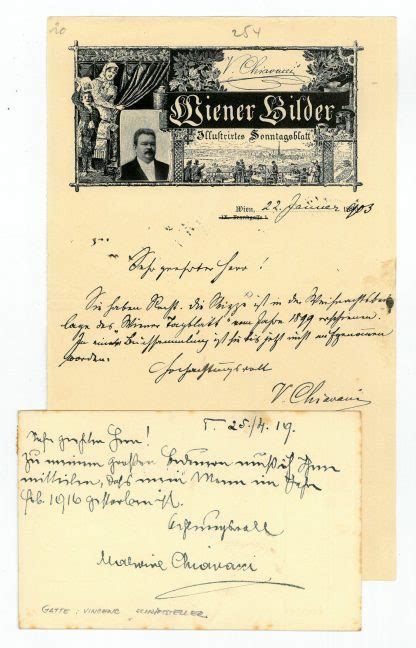 20
254
V. Chiavacci
Wiener Bilder
Illustrirtes Sonntagsblatt
Wien, 22. Jänner 1903
Sehr geehrter Herr!
Sie haben Recht. die Skizze ist in der Weihnachtsbei-
lage des "Wiener Tagblatt" vom Jahre 1899 erschienen.
In einer Buchsammlung ist sie bis jetzt nicht aufgenommen
worden.
Hochachtungsvoll
V. Chiavacci
25./4.19.
Sehr geehrter Herr!
Zu meinem großen Bedauern muß ich Ihnen
mitteilen, daß mein Mann im
Feb. 1916 gestorben ist.
Achtungsvoll
Malwine Chiavacci
GATTE: VINCENZ SCHRIFTSTELLER